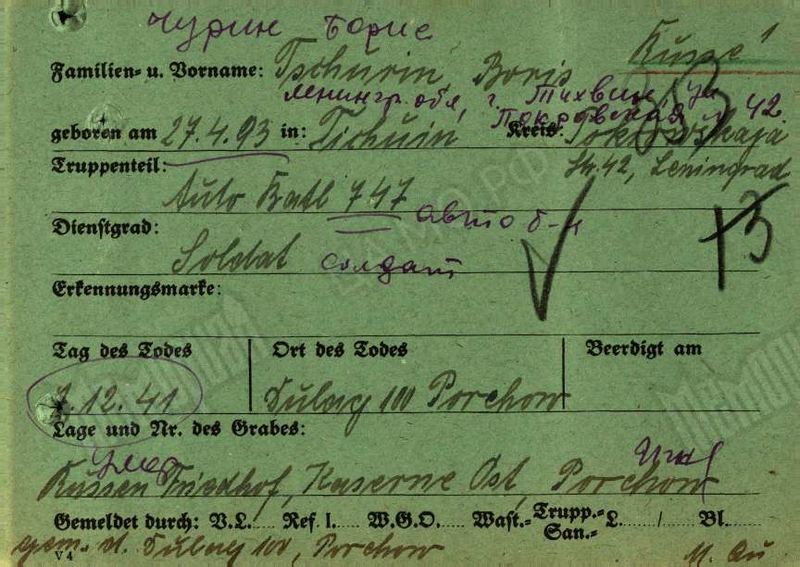 Чурин Борис
Familien- u. Vorname: Tschurin, Boris
Ленингр. обл, г. Тихвин ул
Покровская 42
geboren am 27.4.93 in: Tichwin Kreis: Pokrowskaja
Truppenteil: Str. 42, Leningrad
Auto Batl 747
авто б-н
Dienstgrad:
Soldat солдат
Erkennungsmarke:
Tag des Todes Ort des Todes Beerdigt am
7.12.41 Dulag 100 Porchow
Lage und Nr. des Grabes:
умер
Russen Friedhof, Kaserne Ost, Porchow
Gemeldet durch: V.L. Ref. I. W.G.O. Wast.- Trupp.- San.- L. / Bl.
gem. d. Dulag 100, Porchow
V 4